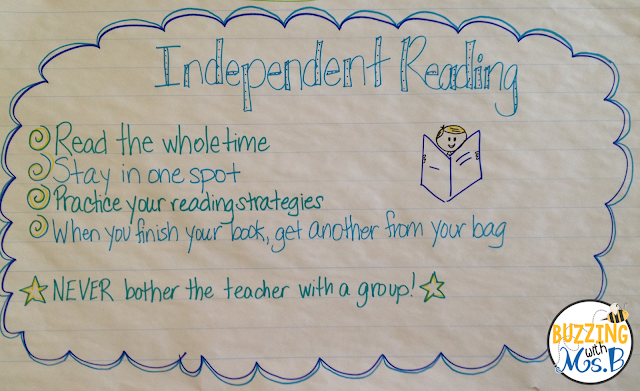 Independent Reading
Read the whole time
Stay in one spot
Practice your reading strategies
When you finish your book, get another from your bag
NEVER bother the teacher with a group!
BUZZING
with
Ms.B